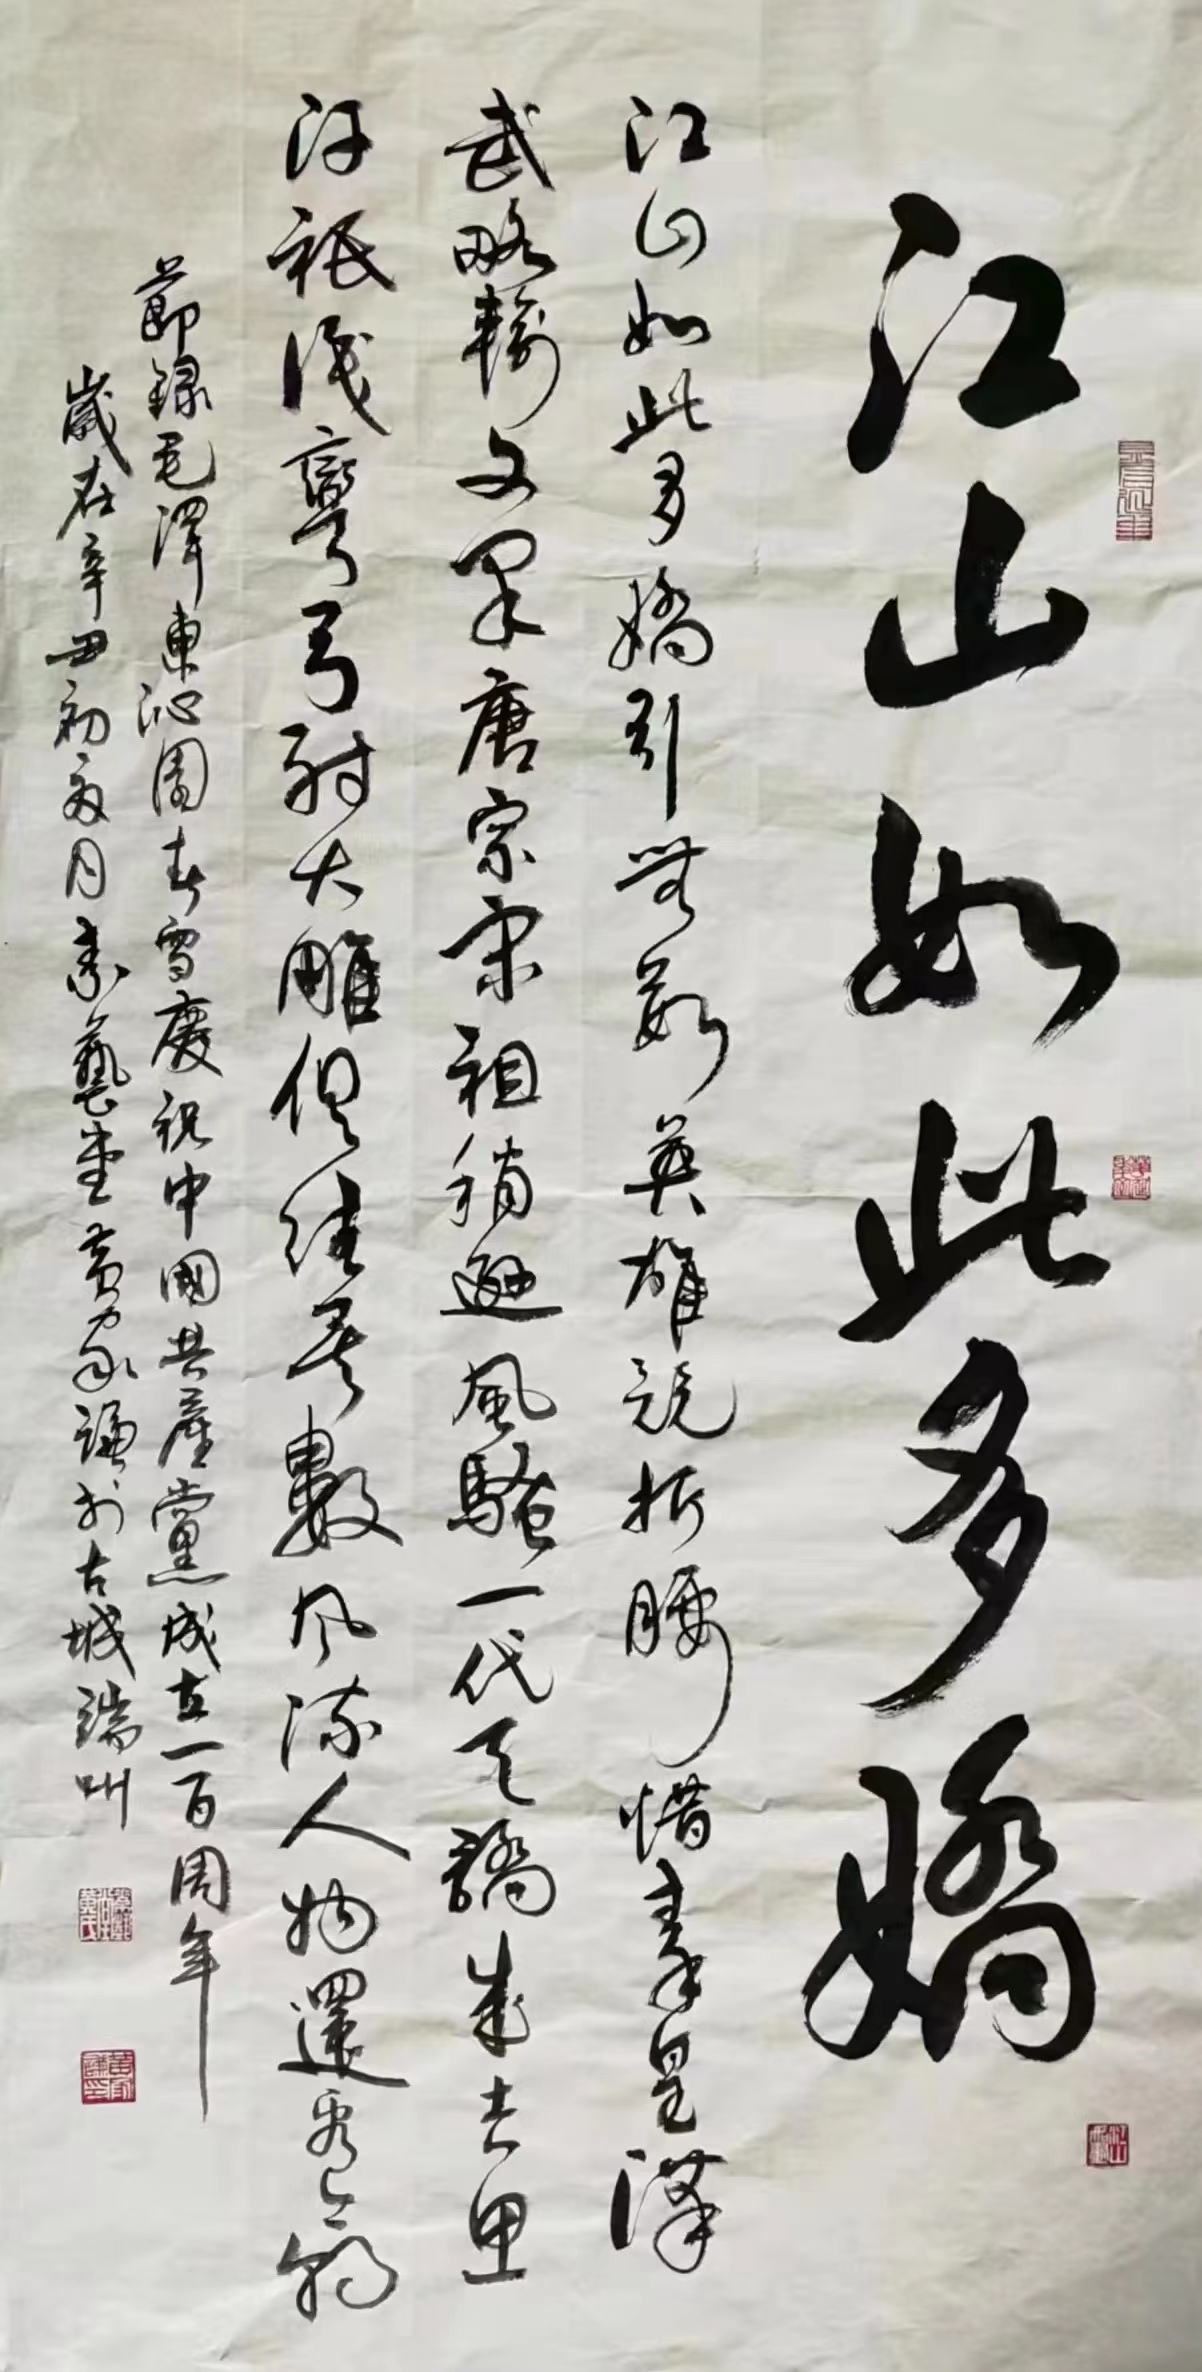 江山如此多嬌
江山如此多嬌引無數英雄競折腰惜秦皇漢
武略輸文采唐宗宋祖稍遜風騷一代天驕成吉思
汗祇識彎弓射大雕俱往矣數风流人物還看今朝
節録毛澤東沁園春雪慶祝中國共產黨成立一百周年
歲在辛丑初夏月藝堂黃家謙於古城端州